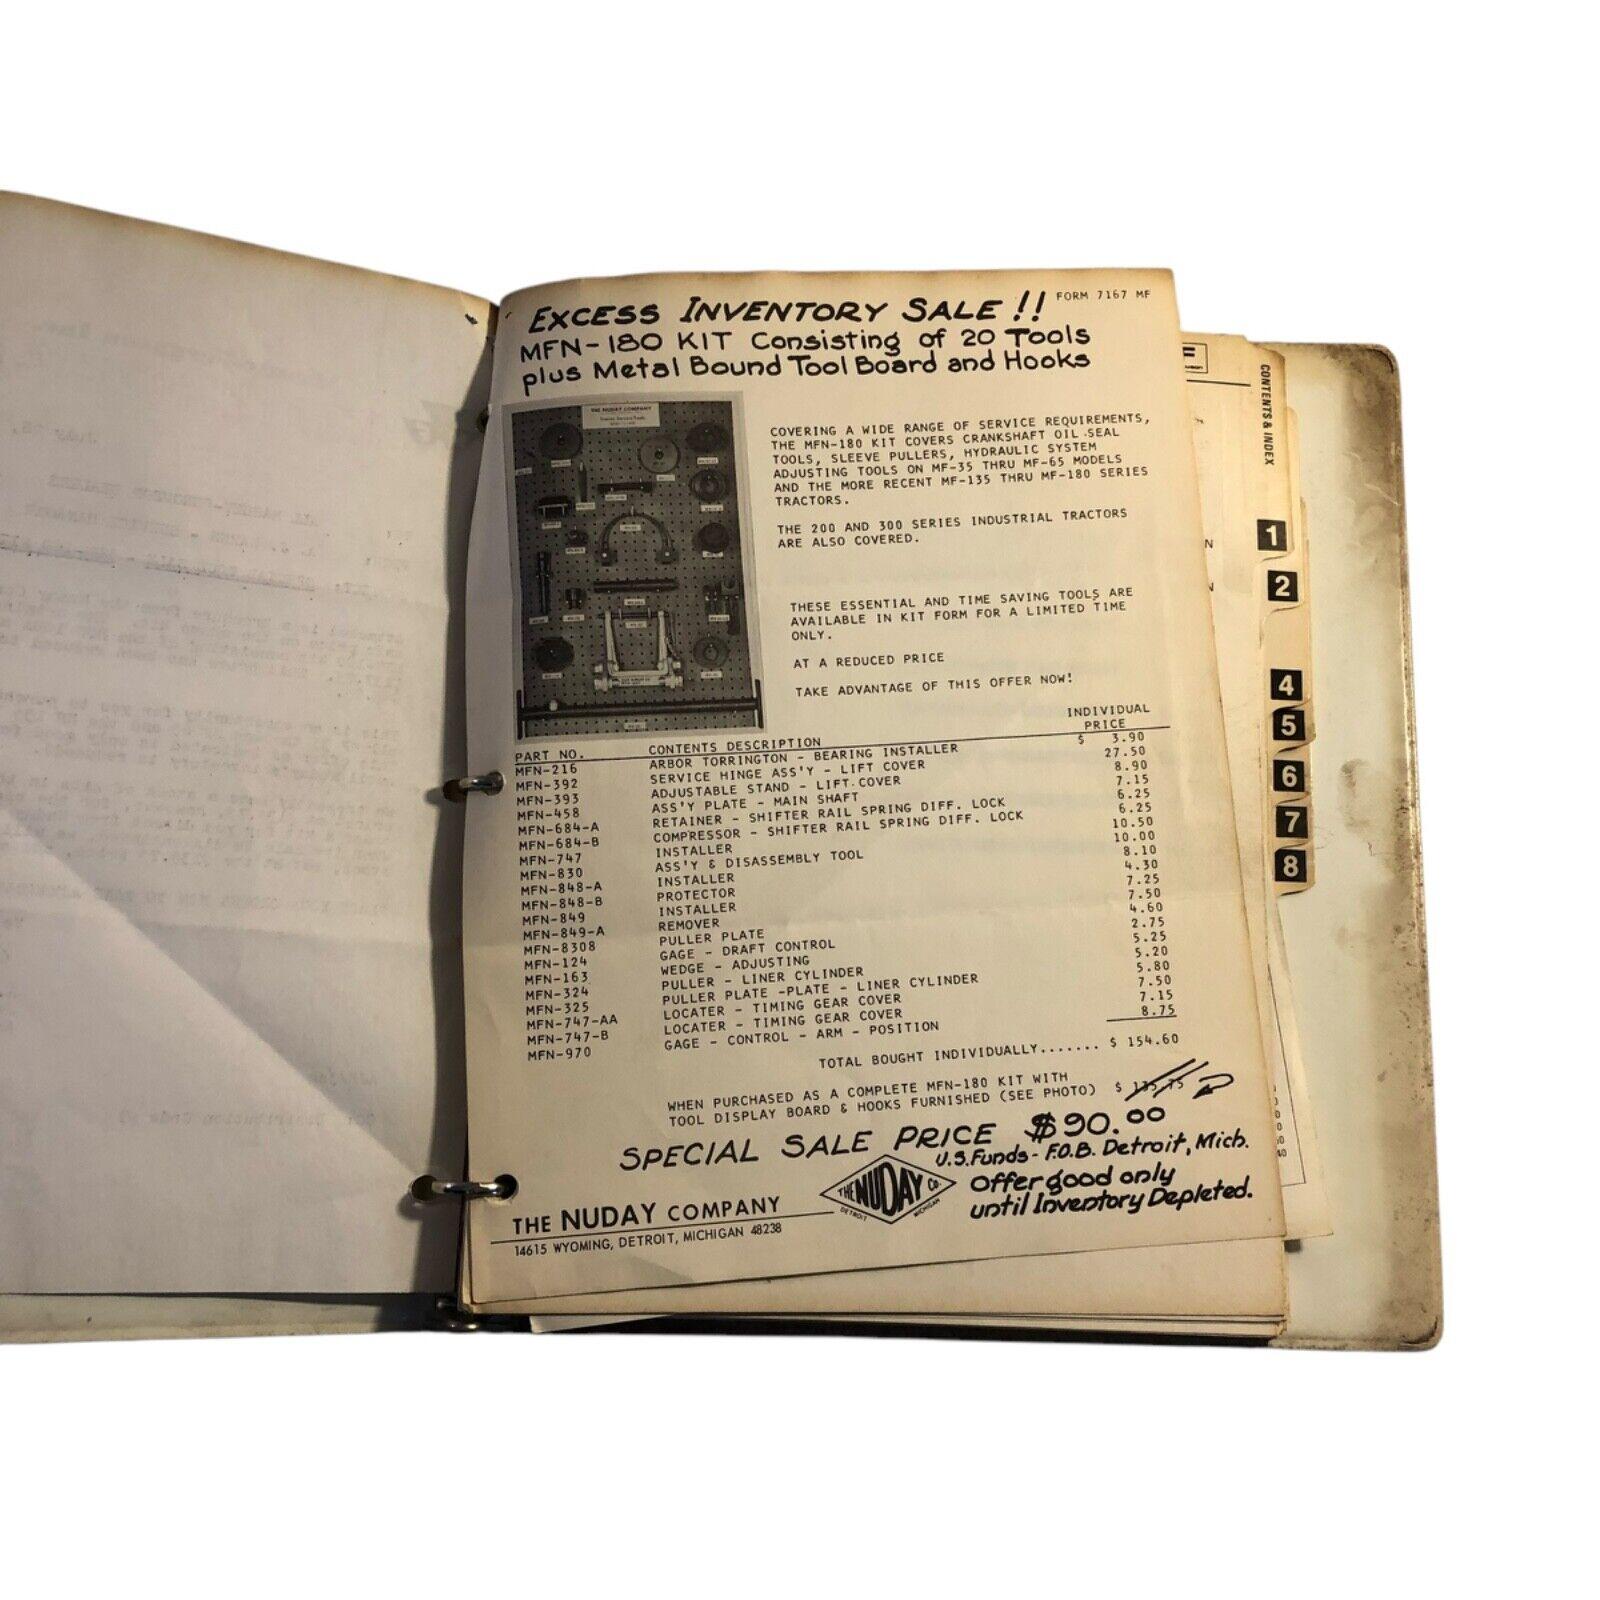 EXCESS INVENTORY SALE!!
FORM 7167 MF
MFN-180 KIT Consisting of 20 Tools
plus Metal Bound Tool Board and Hooks
THE NUDAY COMPANY
COVERING A WIDE RANGE OF SERVICE REQUIREMENTS,
THE MFN-180 KIT COVERS CRANKSHAFT OIL SEAL
TOOLS, SLEEVE PULLERS, HYDRAULIC SYSTEM
ADJUSTING TOOLS ON MF-35 THRU MF-65 MODELS
AND THE MORE RECENT MF-135 THRU MF-180 SERIES
TRACTORS.
THE 200 AND 300 SERIES INDUSTRIAL TRACTORS
ARE ALSO COVERED.
THESE ESSENTIAL AND TIME SAVING TOOLS ARE
AVAILABLE IN KIT FORM FOR A LIMITED TIME
ONLY.
AT A REDUCED PRICE
TAKE ADVANTAGE OF THIS OFFER NOW!
PART NO. CONTENTS DESCRIPTION INDIVIDUAL PRICE
MFN-216 ARBOR TORRINGTON - BEARING INSTALLER $ 3.90
MFN-392 SERVICE HINGE ASS'Y - LIFT COVER 27.50
MFN-393 ADJUSTABLE STAND - LIFT COVER 8.90
MFN-458 ASS'Y PLATE - MAIN SHAFT 7.15
MFN-684-A RETAINER - SHIFTER RAIL SPRING DIFF. LOCK 6.25
MFN-684-B COMPRESSOR - SHIFTER RAIL SPRING DIFF. LOCK 6.25
MFN-747 INSTALLER 10.50
MFN-830 ASS'Y & DISASSEMBLY TOOL 10.00
MFN-848-A INSTALLER 8.10
MFN-848-B PROTECTOR 4.30
MFN-849 INSTALLER 7.25
MFN-849-A REMOVER 7.50
MFN-8308 PULLER PLATE 4.60
MFN-124 GAGE - DRAFT CONTROL 2.75
MFN-163 WEDGE - ADJUSTING 5.25
MFN-324 PULLER - LINER CYLINDER 5.20
MFN-325 PULLER PLATE -PLATE - LINER CYLINDER 5.80
MFN-747-AA LOCATER - TIMING GEAR COVER 7.50
MFN-747-B LOCATER - TIMING GEAR COVER 7.15
MFN-970 GAGE - CONTROL - ARM - POSITION 8.75
TOTAL BOUGHT INDIVIDUALLY....... $ 154.60
WHEN PURCHASED AS A COMPLETE MFN-180 KIT WITH
TOOL DISPLAY BOARD & HOOKS FURNISHED (SEE PHOTO) $ 135.75
SPECIAL SALE PRICE $90.00
U.S. Funds - F.O.B. Detroit, Mich.
Offer good only
until Inventory Depleted.
THE NUDAY COMPANY
14615 WYOMING, DETROIT, MICHIGAN 48238
THE NUDAY CO.
DETROIT MICHIGAN
CONTENTS & INDEX
1
2
4
5
6
7
8